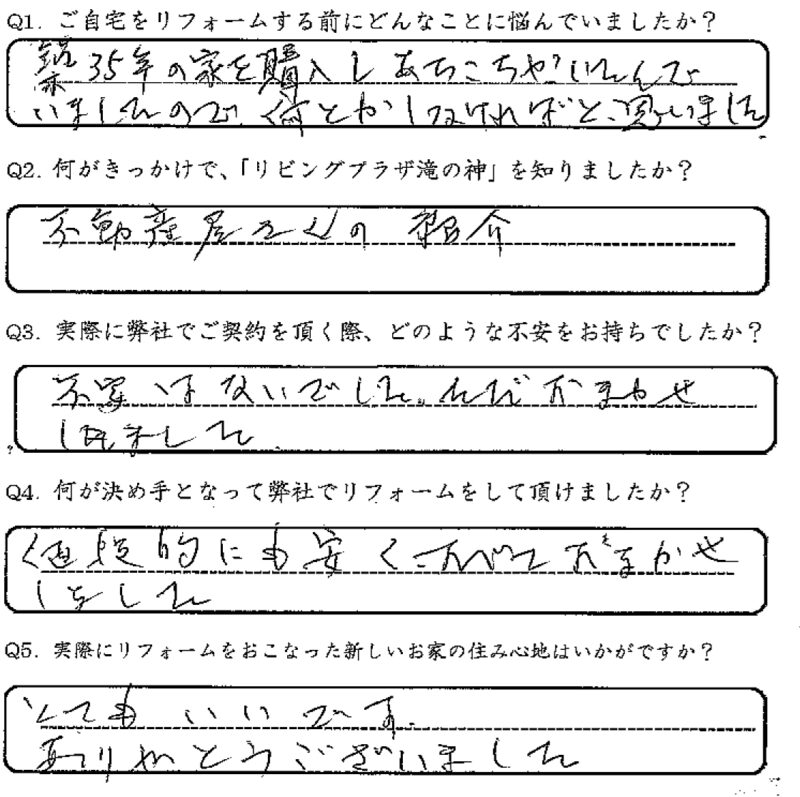 Q1. ご自宅をリフォームする前にどんなことに悩んでいましたか？
築35年の家を購入しあちこちがいたんで
いましたので、何とかしなければと、思いました
Q2. 何がきっかけで、「リビングプラザ滝の神」を知りましたか？
不動産屋さんの紹介
Q3. 実際に弊社でご契約を頂く際、どのような不安をお持ちでしたか？
不安はないでした。ただおまかせ
しました
Q4. 何が決め手となって弊社でリフォームをして頂けましたか？
値段的にも安くすべておまかせ
しました
Q5. 実際にリフォームをおこなった新しいお家の住み心地はいかがですか？
とてもいいです。
ありがとうございました